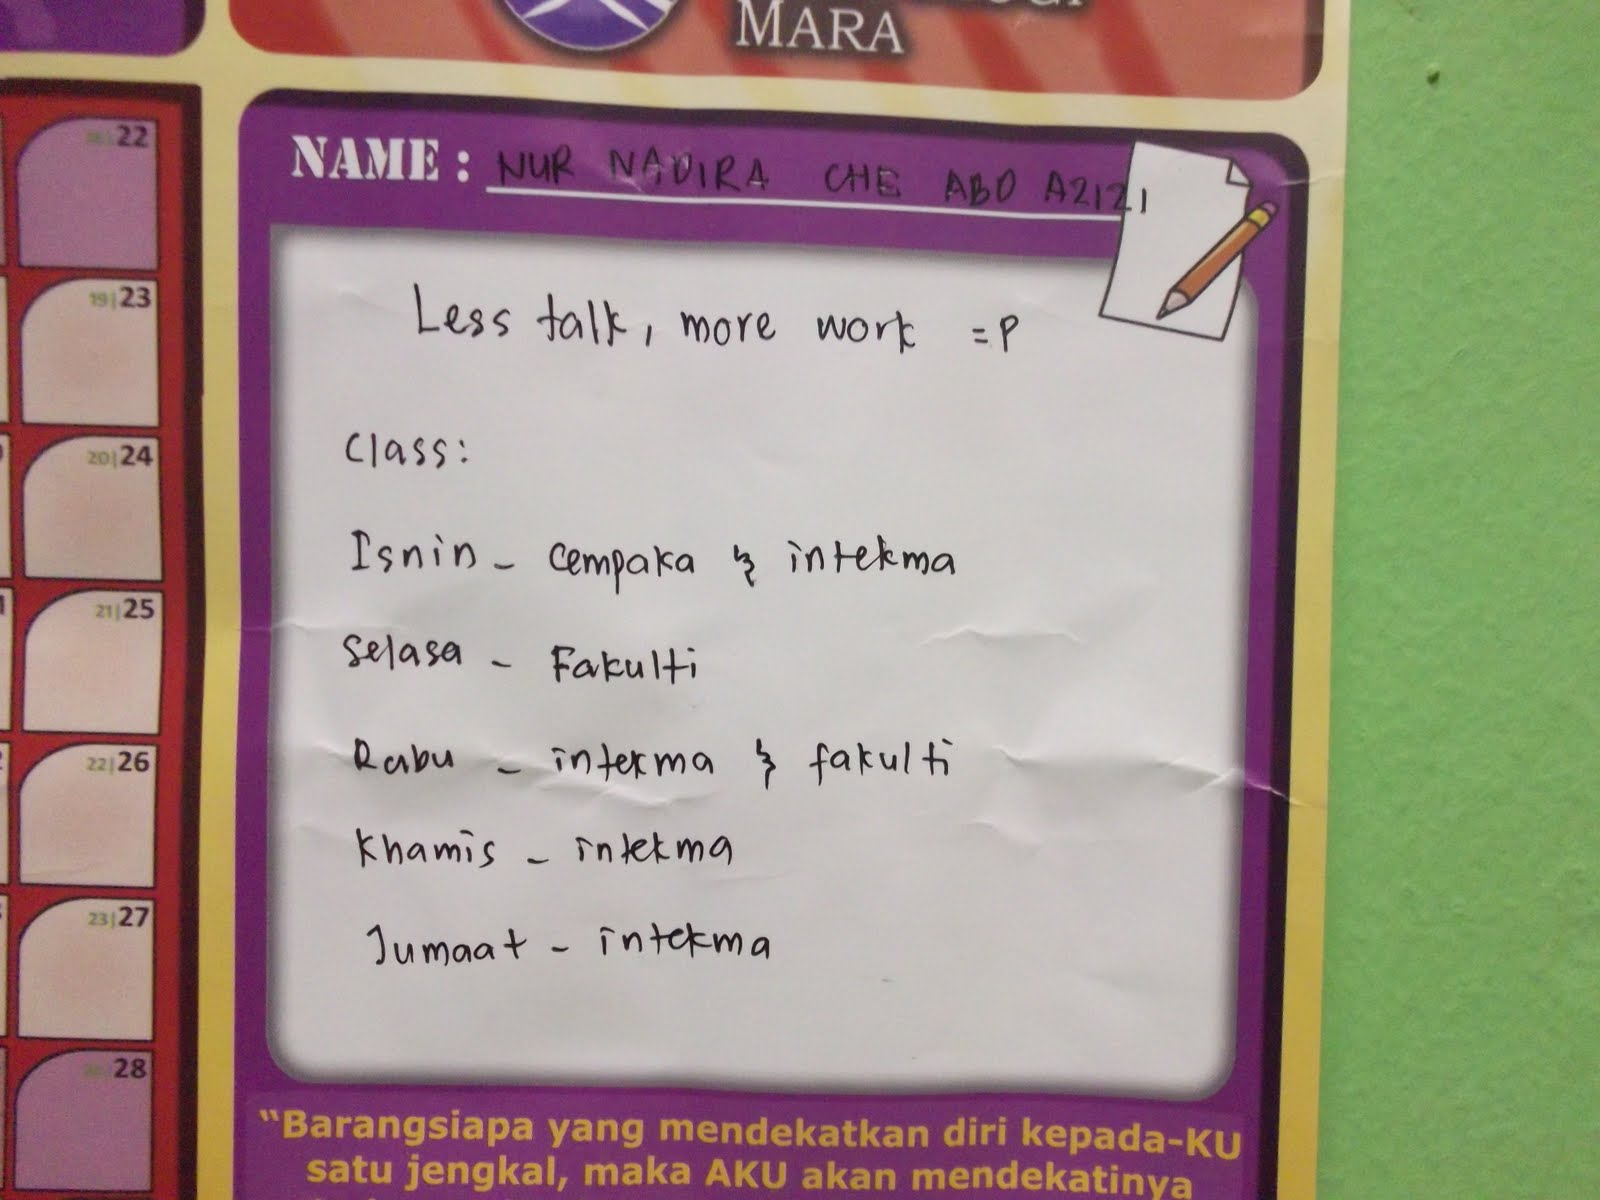 MARA
22
19|23
20|24
21|25
22|26
23|27
28
NAME: NUR NADIRA CHE ABD AZIZI
Less talk, more work =P
Class:
Isnin - cempaka & intekma
Selasa - Fakulti
Rabu - intekma & fakulti
Khamis - intekma
Jumaat - intekma
"Barangsiapa yang mendekatkan diri kepada-KU
satu jengkal, maka AKU akan mendekatinya